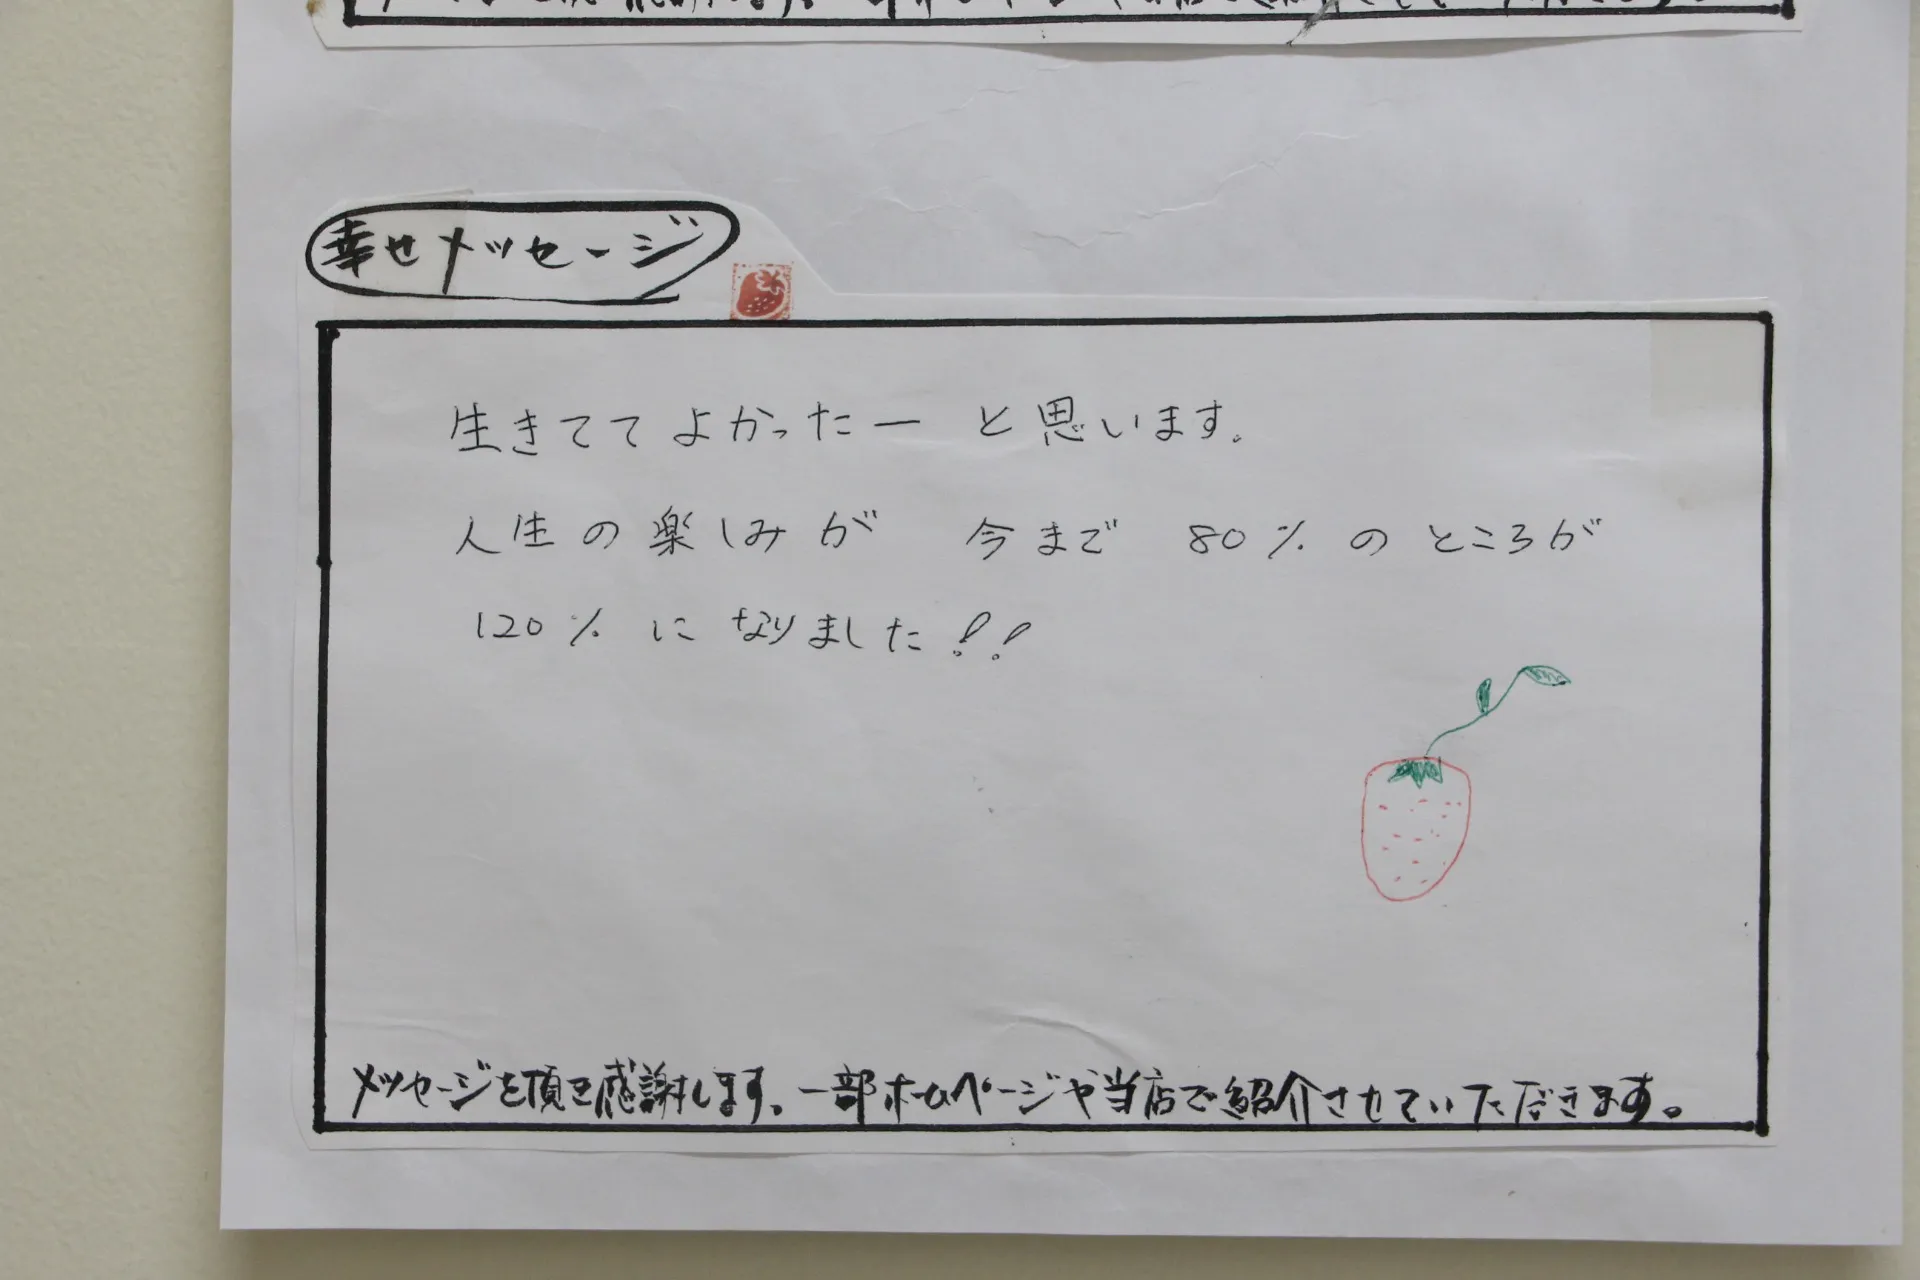 幸せメッセージ
生きててよかったー と思います。
人生の楽しみが 今まで 80%のところが
120%に なりました!!
メッセージを頂き感謝します。一部ホームページや当店で紹介させていただきます。